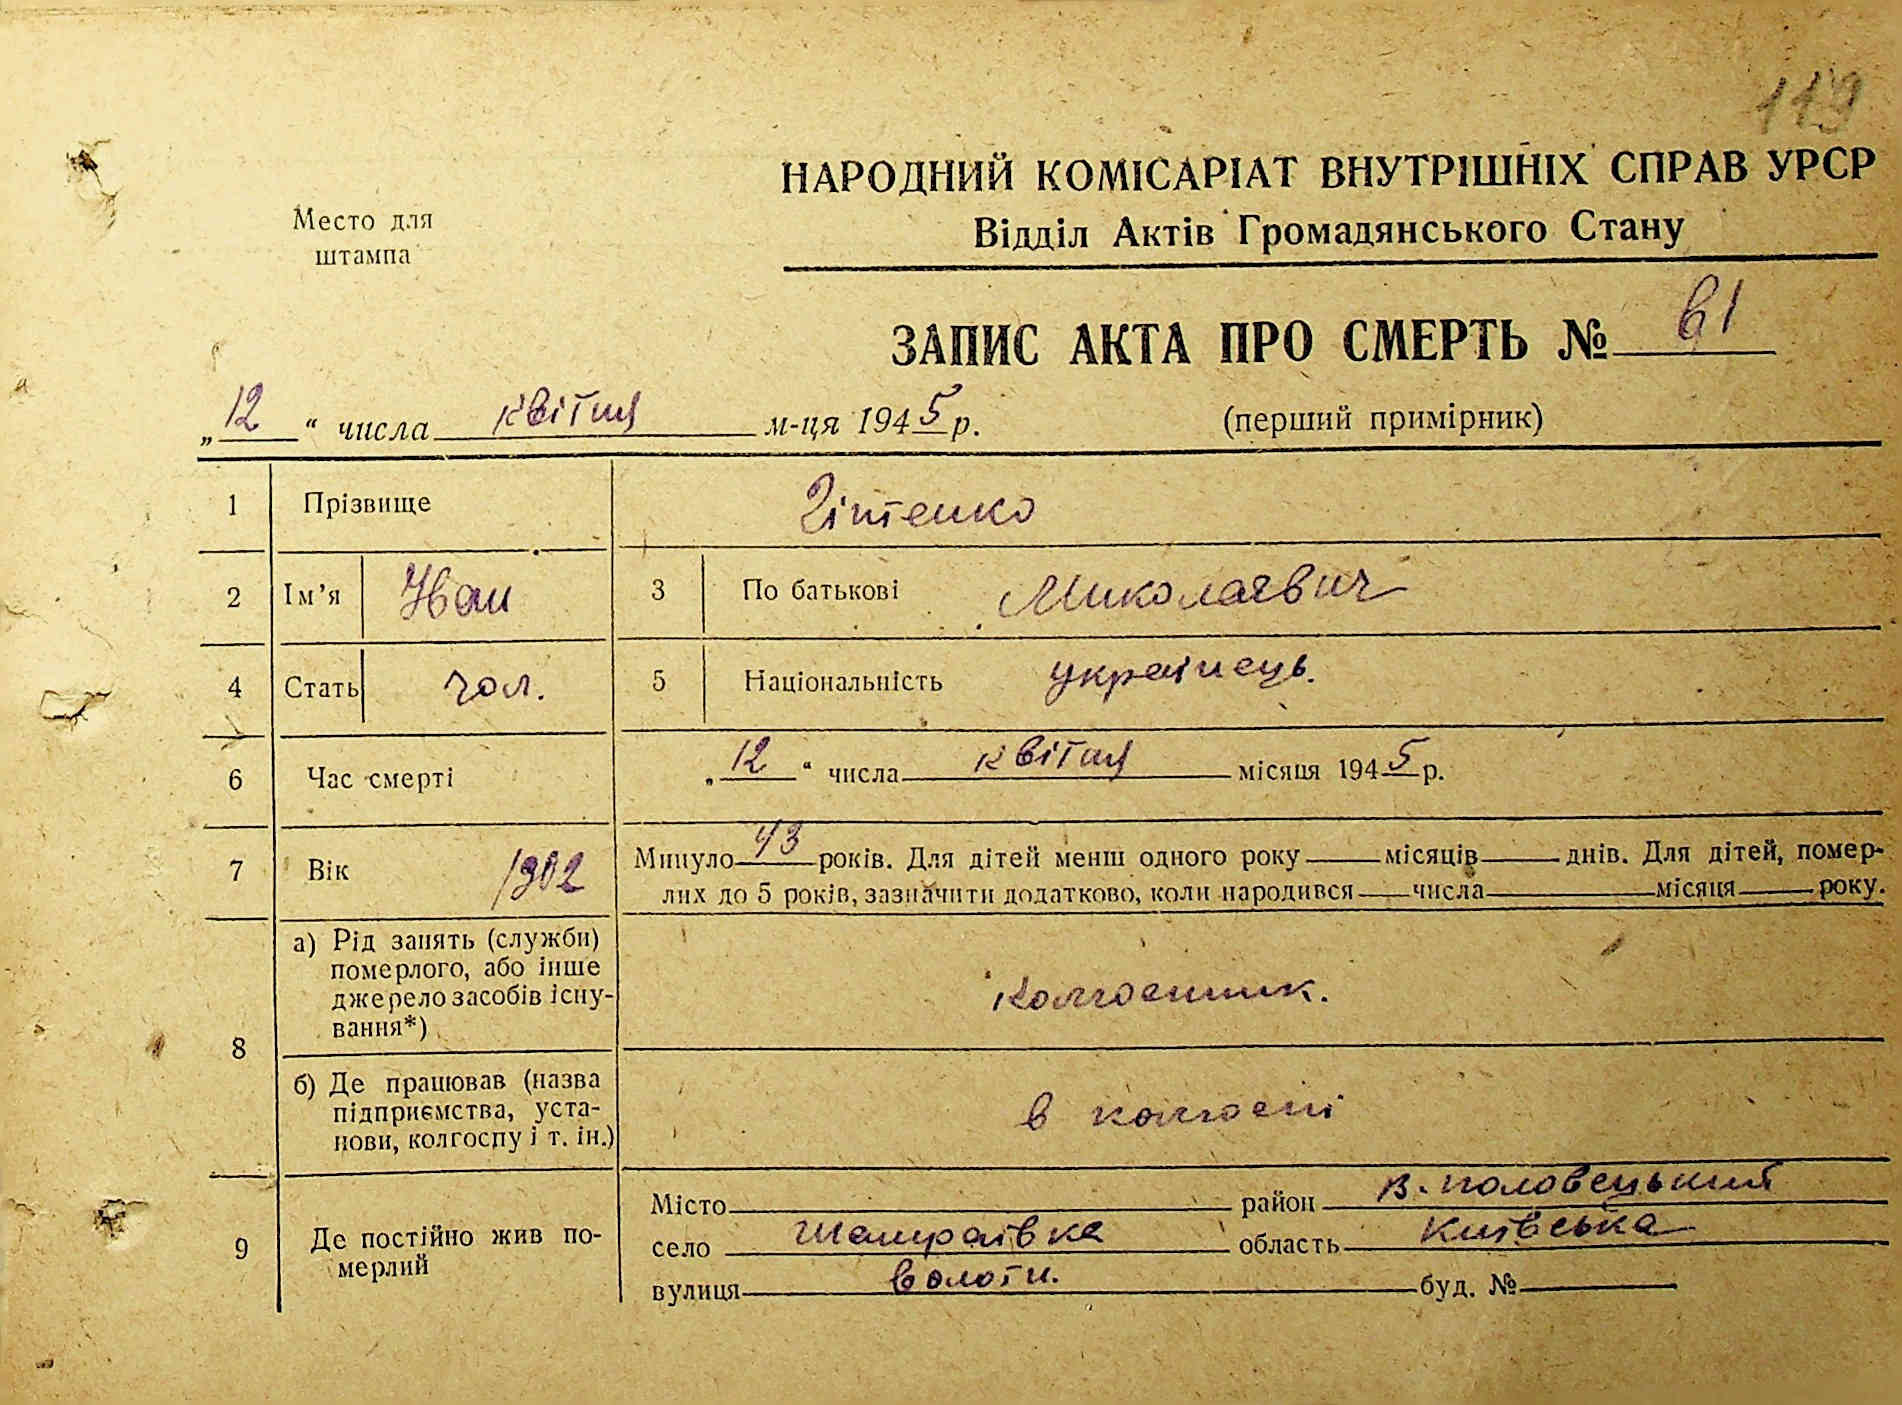 119
НАРОДНИЙ КОМІСАРІАТ ВНУТРІШНІХ СПРАВ УРСР
Место для штампа
Відділ Актів Громадянського Стану
ЗАПИС АКТА ПРО СМЕРТЬ № 61
„12“ числа квітня м-ця 1945 р. (перший примірник)
1 Прізвище Гітенко
2 Ім'я Иван 3 По батькові Миколаєвич
4 Стать чол. 5 Національність українець.
6 Час смерті „12“ числа квітня місяця 1945 р.
7 Вік 1902 Минуло 43 років. Для дітей менш одного року місяців днів. Для дітей, помер-
лих до 5 років, зазначити додатково, коли народився числа місяця року.
8 а) Рід занять (служби)
померлого, або інше
джерело засобів існу-
вання*)
колгоспник.
б) Де працював (назва
підприємства, уста-
нови, колгоспу і т. ін.)
в колгоспі
9 Де постійно жив по-
мерлий
Місто район В-половецький
село Шамраївка область Київська
вулиця буд. №